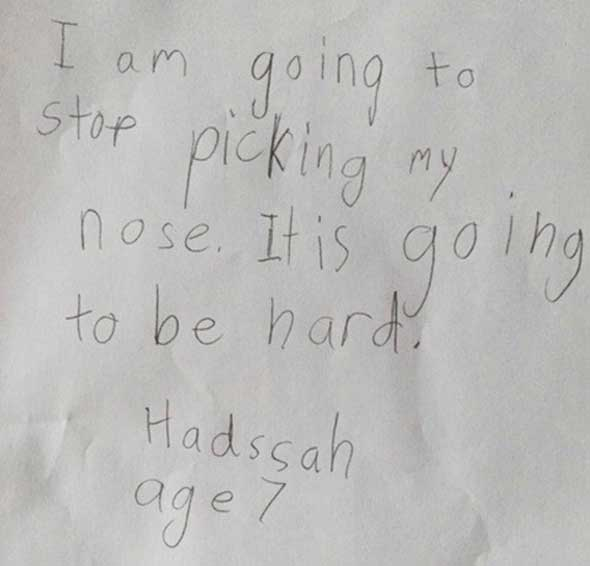 I am going to
stop picking my
nose. It is going
to be hard.
Hadssah
age 7